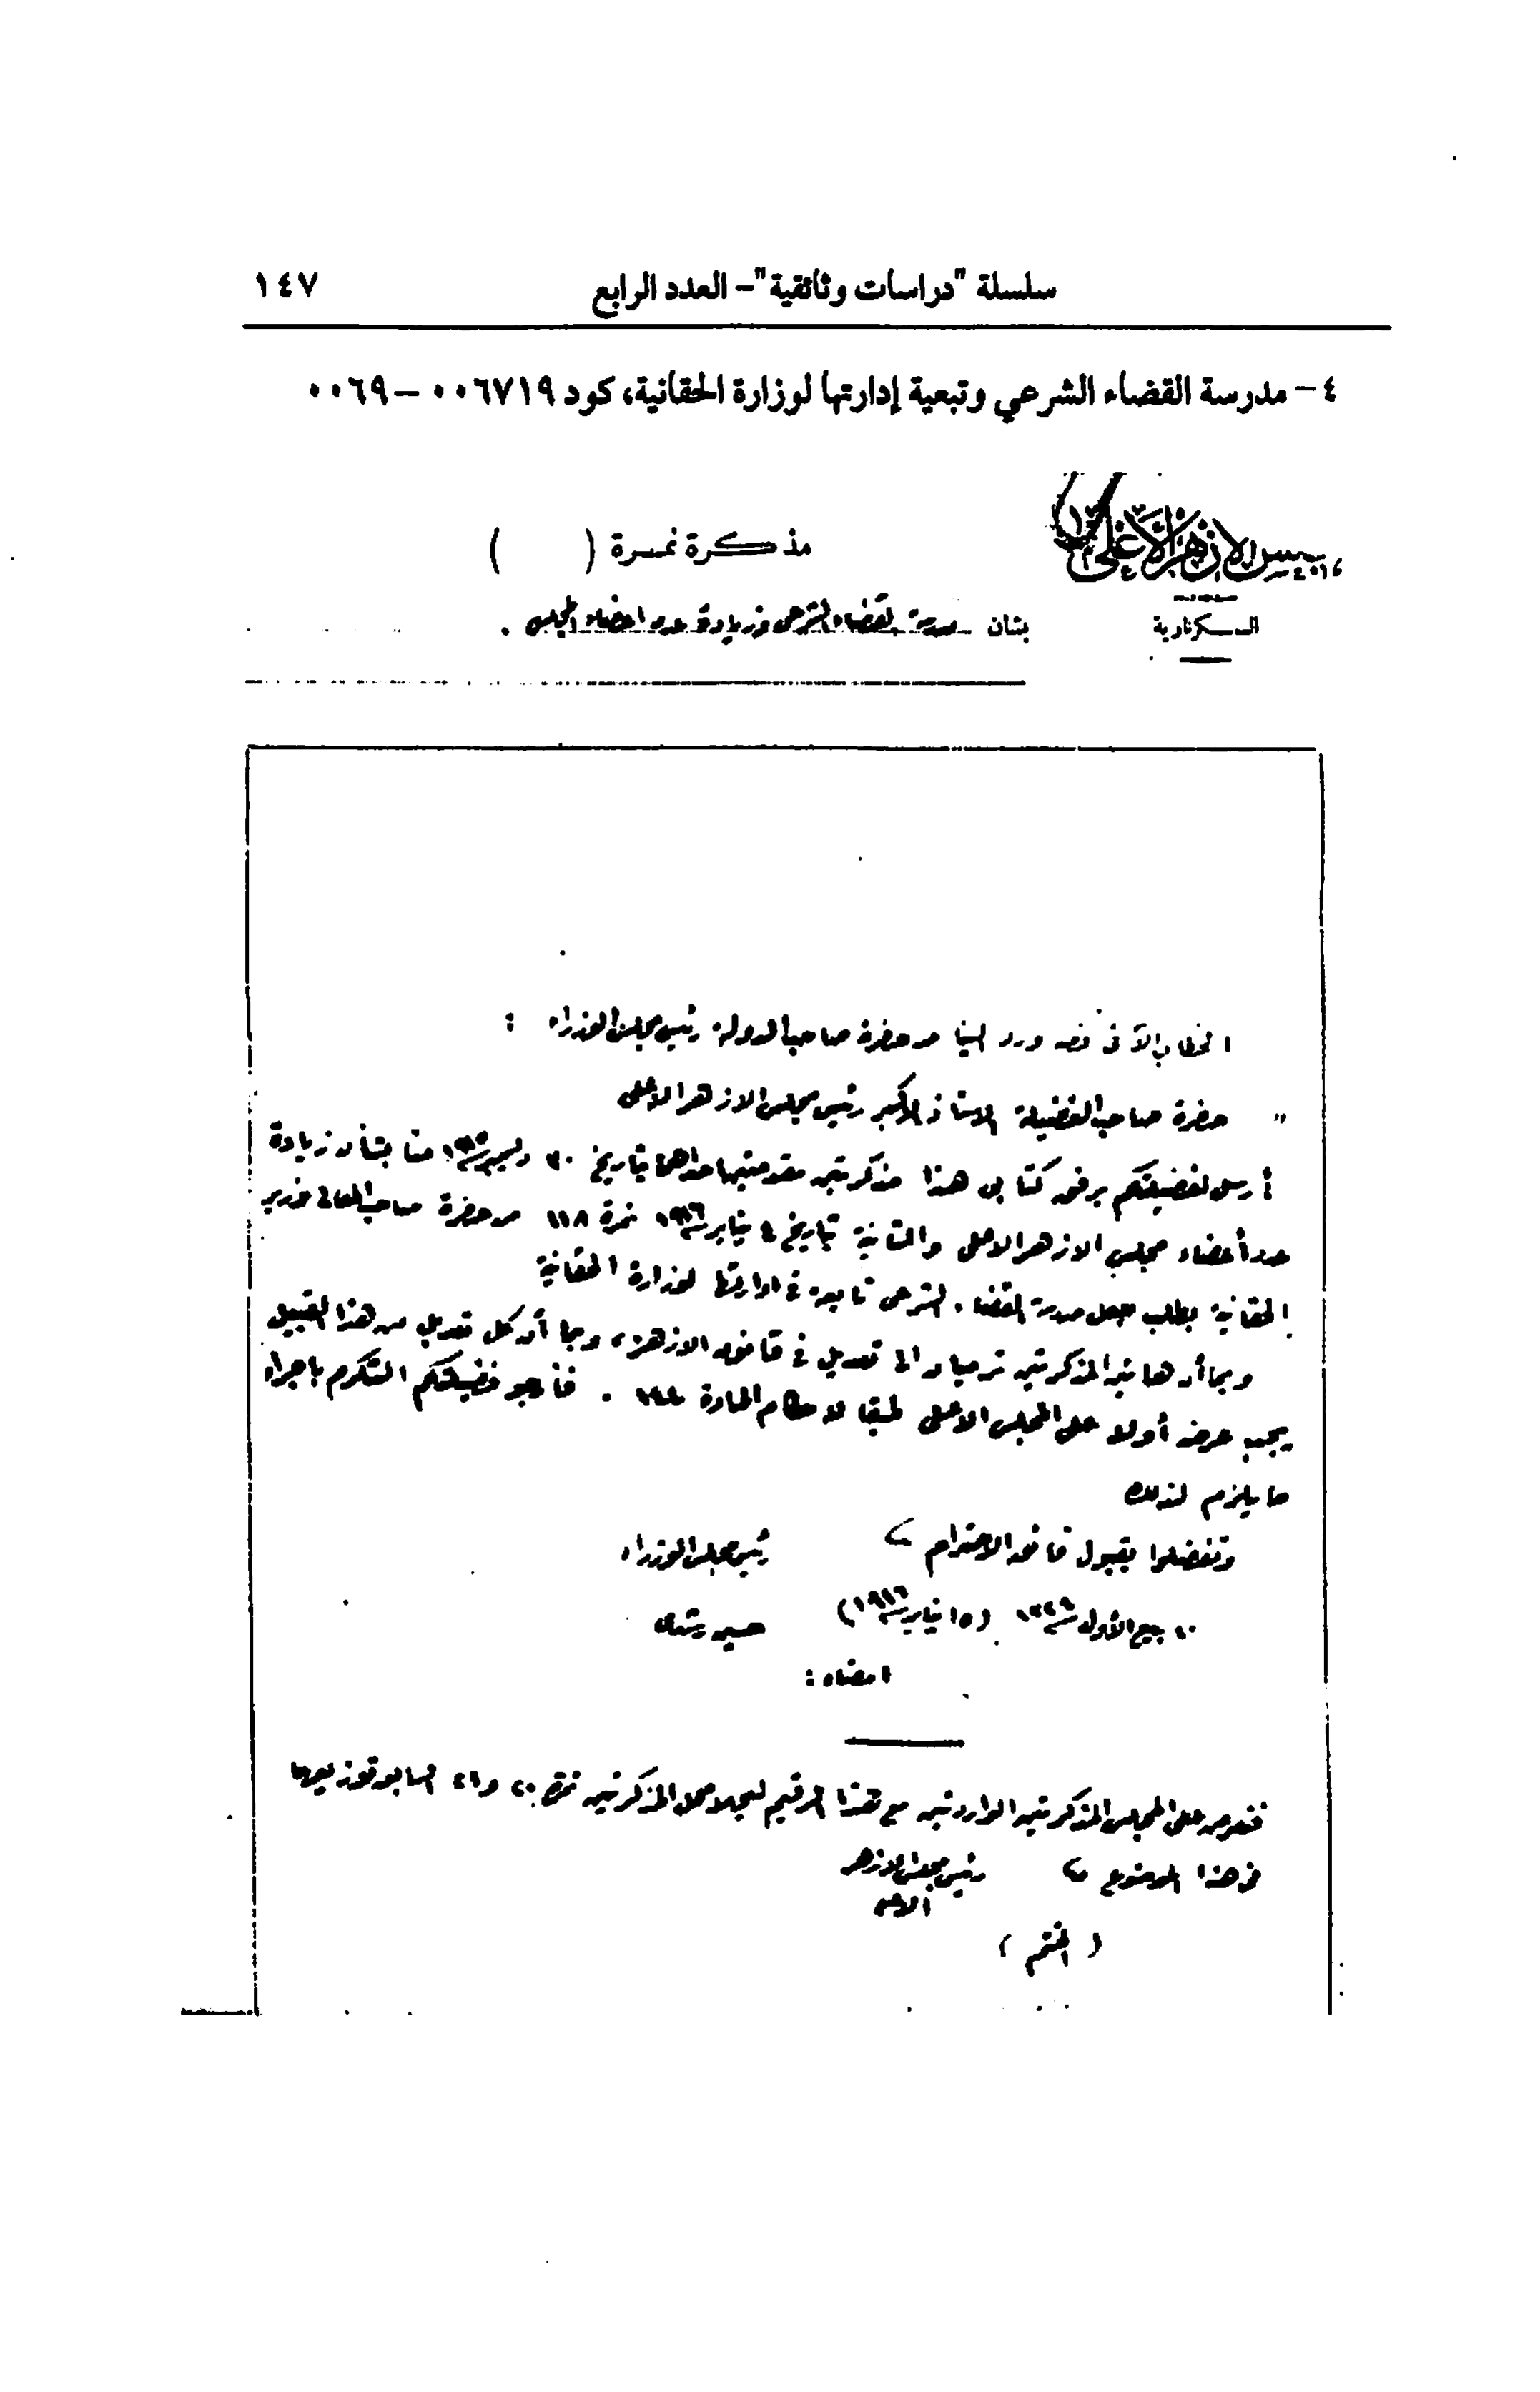 سلسلة "دراسات وثائقية"- العدد الرابع ١٤٧
٤- مدرسة القضاء الشرعي وتبعية إدارتها لوزارة الحقانية، كود ٠٠٦٧١٩ - ٠٠٦٩
الازهر الأعلى
مذكرة نمرة ( )
السكرتارية
بشان مدرسة القضاء الشرعى وزيادة عدد اعضاء المجلس .
الخطاب الآتى نصه ورد الينا من حضرة صاحب الدولة رئيس مجلس الوزراء :
" حضرة صاحب الفضيلة الاستاذ الأكبر رئيس مجلس الازهر الأعلى
أرسل لفضيلتكم برفق كتابى هذا مذكرتين مقدمتين احداهما بتاريخ ٣٠ ديسمبر سنة ١٩١٥ منا بشأن زيادة
عدد أعضاء مجلس الازهر الاعلى والثانية بتاريخ ٤ يناير سنة ١٩١٦ نمرة ١١٨ من حضرة صاحب المعالى وزير
الحقانية بطلب جعل مدرسة القضاء الشرعى تابعة فى ادارتها لوزارة الحقانية
وبما أن هاتين المذكرتين ترميان الى تعديل فى قانون الازهر، وبما أن كل تعديل من هذا القبيل
يجب عرضه أولا على المجلس الاعلى طبقا لاحكام المادة . فأرجو فضيلتكم التكرم باجراء
ما يلزم لذلك
وتفضلوا بقبول فائق الاحترام رئيس مجلس الوزراء
١٠ ربيع الأول سنة (١٥ يناير سنة ١٩١٦) حسين رشدى
امضاء :
فنعرض على المجلس المذكرتين الواردتين مع هذا الرقيم المذكرتين ٢٠ و٢١ السابق توزيعهما
فى هذا الموضوع رئيس مجلس الازهر
الاعلى
( الختم )